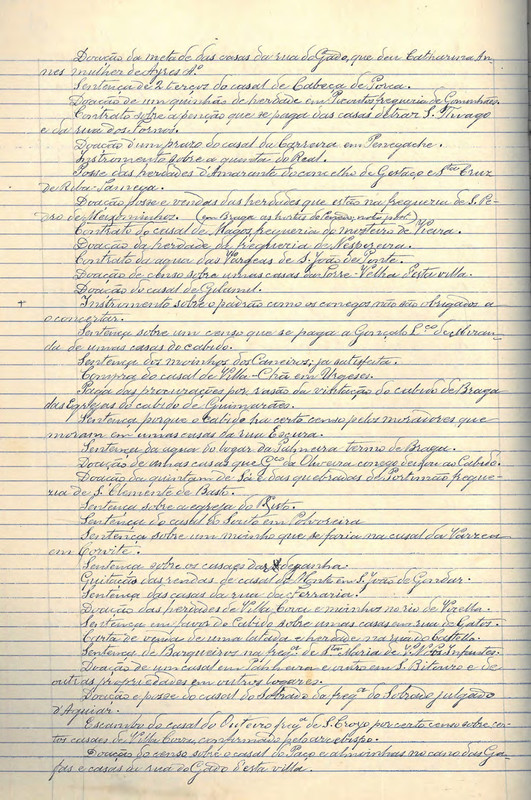 Doação da metade das casas da rua do Gado, que deu Catharina An-
nes mulher de Ayres Aº.
Sentença de 2 terços do casal de Cabeça de Porca.
Doação de um quinhão de herdade em freguezia de Gominhães.
Contrato sobre a penção que se paga das casas detraz S. Thiago
e da rua dos Fornos.
Doação d'um prazo do casal da Carreira em Penegache.
Instromento sobre a quinta do Real.
Posse das herdades d'Amarante do concelho de Gestaço e Stª Cruz
de Riba-Tamega.
Doação posse e vendas das herdades que estão na fregueria de S. Pe-
dro de (em Braga as hortas
Contrato do casal de Magos, fregueria do mosteiro de Vieira.
Doação da herdade da fregueria de Nespereira.
Contrato da agua das Varzeas de S. João de Ponte.
Doação de censo sobre umas casas da Torre-Velha d'esta villa.
Doação do casal de
+ Instrumento sobre o padrão como os conegos não são obrigados a
o concertar.
Sentença sobre um censo que se paga a Gonçalo Lço de Miran-
da de umas casas do cabido.
Sentença dos moinhos dos Caneiros; ja satisfeita.
Compra do casal de Villa-Chã em Urgeses.
Paga das procurações por rasão da visitação do cabido de Braga
das Egrejas do cabido de Guimarães.
Sentença porque o Cabido ha certo censo pelos moradores que
moram em umas casas da rua Escura.
Sentença da agua do logar da Palmeira termo de Braga.
Doação de umas casas que Gço da Oliveira conego deixou ao Cabido.
Doação da quintam de Sá e das quebradas de Portimão fregue-
ria de S. Clemente de Basto.
Sentença sobre a egreja do Pinto.
Sentença do casal do Souto em Polvoreira
Sentença sobre um moinho que se faria na casal da Varzea
em Corvite.
Sentença sobre os casaes das
Quitação das rendas de casal do Monte em S. João de Gondar.
Sentença das casas da rua da ferraria.
Doação das herdades de Villa Cova e moinhos no rio de Vizella.
Sentença em favor do Cabido sobre umas casas em rua de Gatos.
Carta de venda de uma latada e herdade na rua do Castello.
Sentença de Barqueiros na fregª de Stª Maria de
Doação de um casal em Pinheiro e outro em S. Bitouro e de
outras propriedades em outros logares.
Doação e posse do casal do Sobrado da fregª do Sobrado julgado
d'Aguiar.
Escambo do casal do Outeiro fregª de S. Croyo por certo censo sobre cer-
tos casaes de Villa Cova, confirmado pelo arcebispo.
Doação do censo sobre o casal do Paço e almoinhas no cano das Ga-
fas e casas da rua do Gado d'esta villa.